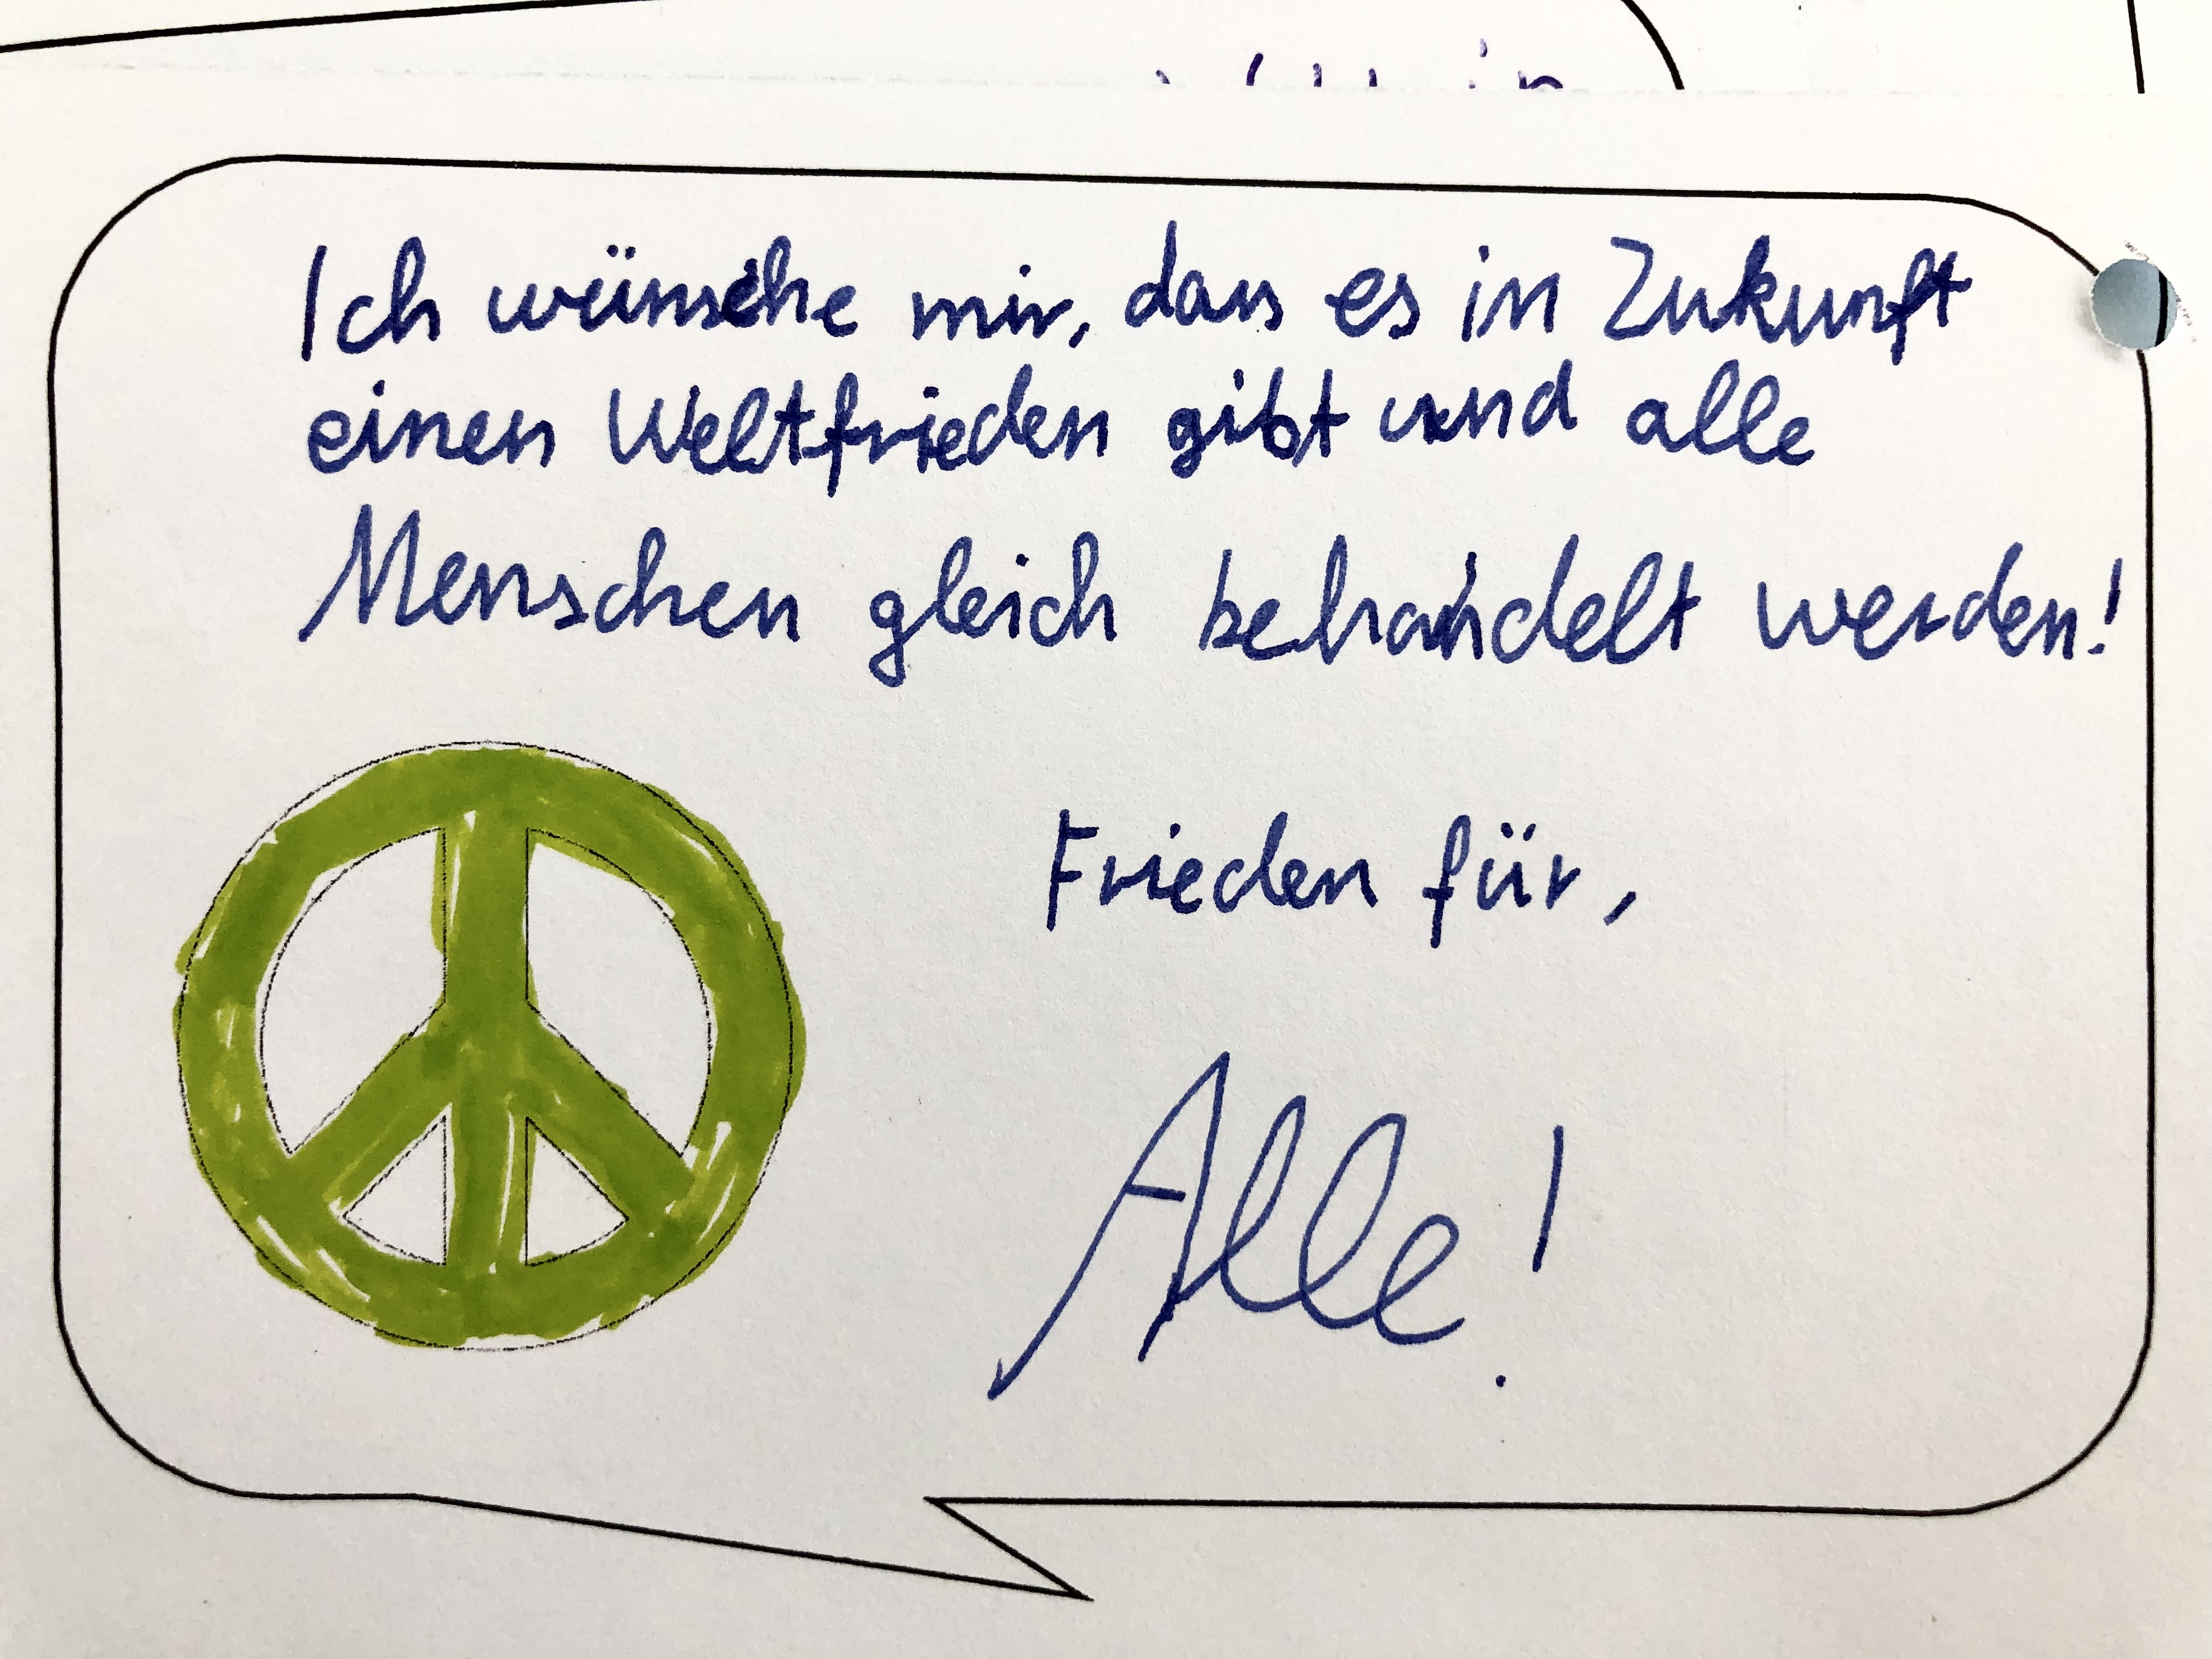 Ich wünsche mir, dass es in Zukunft
einen Weltfrieden gibt und alle
Menschen gleich behandelt werden!
Frieden für,
Alle!